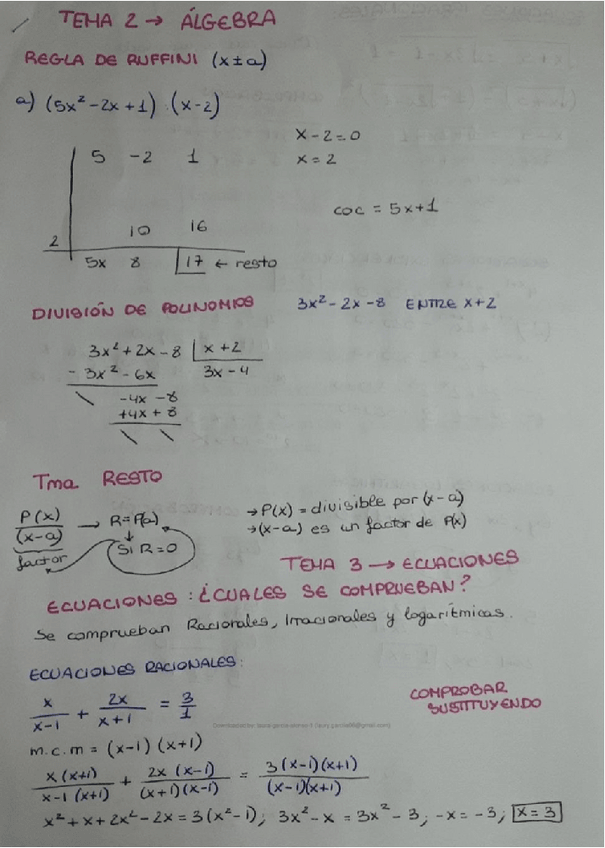 TEMA 2 → ÁLGEBRA
REGLA DE RUFFINI (x±a)
a) (5x² - 2x + 1) : (x-2)
x - 2 = 0
5 -2 1
x = 2
coc = 5x+1
10 16
2
5x 8 17 ← resto
DIVISIÓN DE POLINOMIOS 3x² - 2x - 8 ENTRE x+2
3x² + 2x - 8 | x + 2
- 3x² - 6x 3x - 4
-4x - 8
+4x + 8
Tma RESTO
P(x)/(x-a) → R = P(a)
→ P(x) = divisible por (x-a)
→ (x-a) es un factor de P(x)
factor
Si R = 0
TEMA 3 → ECUACIONES
ECUACIONES : ¿CUALES SE COMPRUEBAN?
Se comprueban Racionales, Irracionales y logarítmicas.
ECUACIONES RACIONALES:
x/x-1 + 2x/x+1 = 3/1
COMPROBAR
SUSTITUYENDO
m.c.m = (x-1) (x+1)
x(x+1)/x-1 (x+1) + 2x (x-1)/(x+1)(x-1) = 3(x-1)(x+1)/(x-1)(x+1)
x² + x + 2x² - 2x = 3(x²-1); 3x² - x = 3x² - 3; -x = -3; x = 3